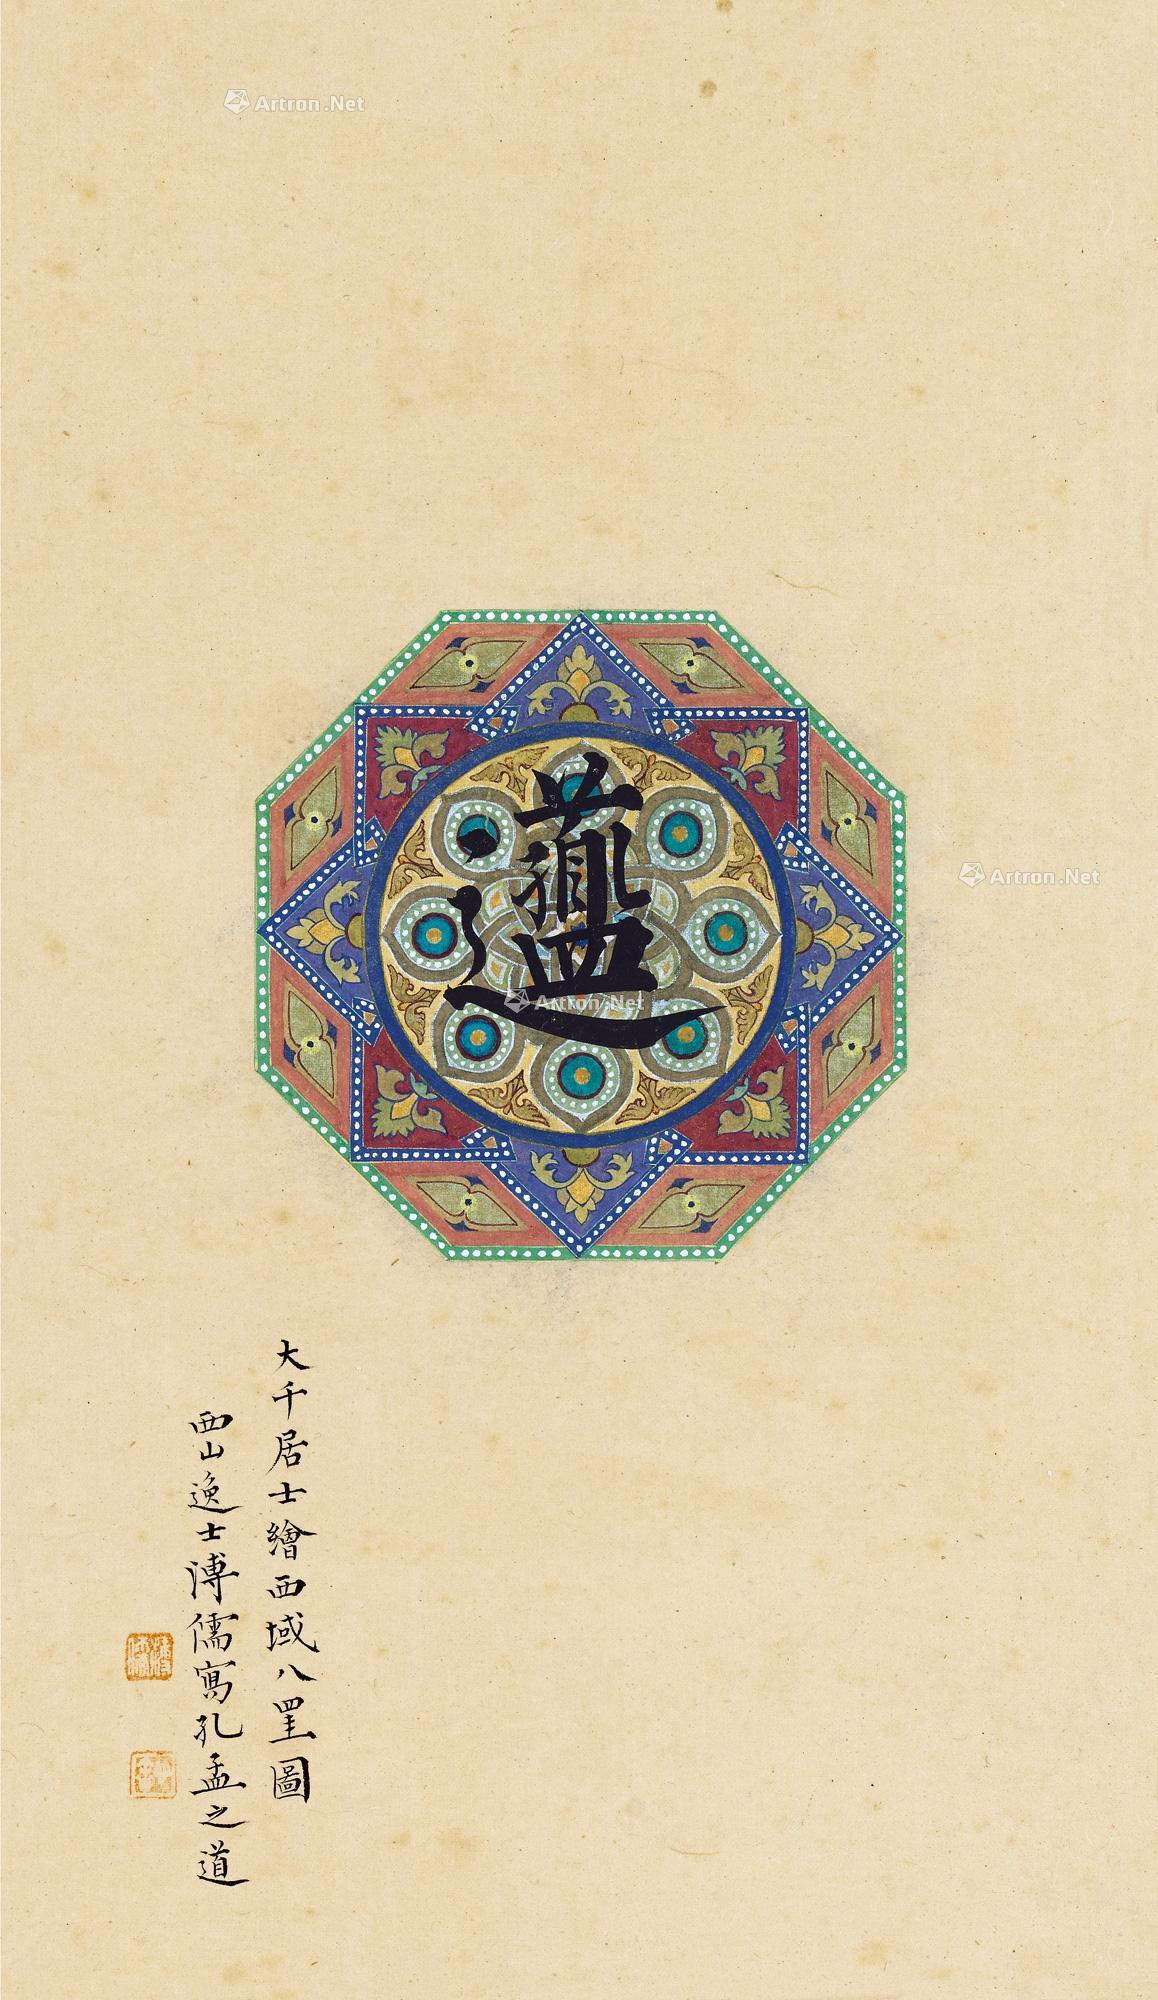 Artron.Net
Artron.Net
Artron.Net
大千居士繪西域八罣圖
西山逸士溥儒寫孔孟之道
溥儒